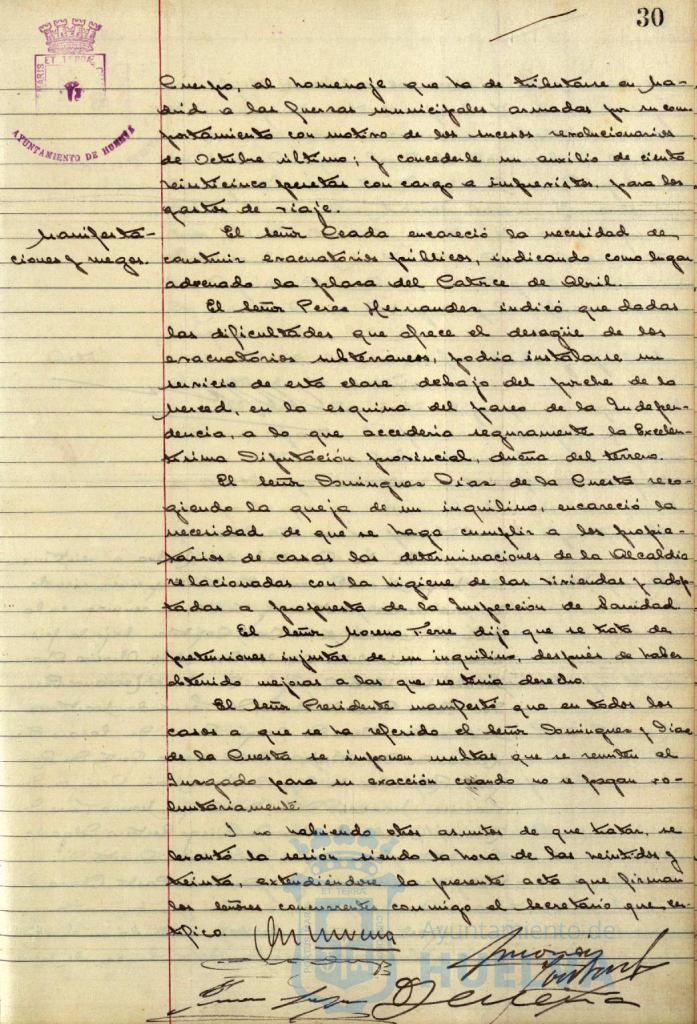 30
AYUNTAMIENTO DE HUELVA
Cuerpo, al homenaje que ha de tributarse en Ma-
drid a las fuerzas municipales armadas por su com-
portamiento con motivo de los sucesos revolucionarios
de Octubre último; y concederle un auxilio de ciento
veinticinco pesetas con cargo a imprevistos para los
gastos de viaje.
Manifesta-
ciones y ruegos.
El Señor Ceada encareció la necesidad de
construir evacuatorios públicos, indicando como lugar
adecuado la plaza del Catorce de Abril.
El Señor Perez Hernandez indicó que dadas
las dificultades que ofrece el desagüe de los
evacuatorios subterraneos, podria instalarse un
servicio de esta clase debajo del porche de la
Merced, en la esquina del paseo de la Indepen-
dencia, a lo que accederia seguramente la Excelen-
tisima Diputación provincial, dueña del terreno.
El Señor Dominguez Diaz de la Cuesta reco-
giendo la queja de un inquilino, encareció la
necesidad de que se haga cumplir a los propie-
tarios de casas las determinaciones de la Alcaldia
relacionadas con la higiene de las viviendas y adop-
tadas a propuesta de la Inspección de Sanidad
El Señor Moreno Ferre dijo que se trata de
pretensiones injustas de un inquilino, después de haber
obtenido mejoras a las que no tenia derecho.
El Señor Presidente manifestó que en todos los
casos a que se ha referido el Señor Dominguez y Diaz
de la Cuesta se imponen multas que se remiten al
Juzgado para su exacción cuando no se pagan vo-
luntariamente
I no habiendo otros asuntos de que tratar, se
levantó la sesión siendo la hora de las veintidos y
treinta, extendiéndose la presente acta que firman
los señores concurrentes conmigo el Secretario que cer-
tifico.
Ayuntamiento de
HUELVA